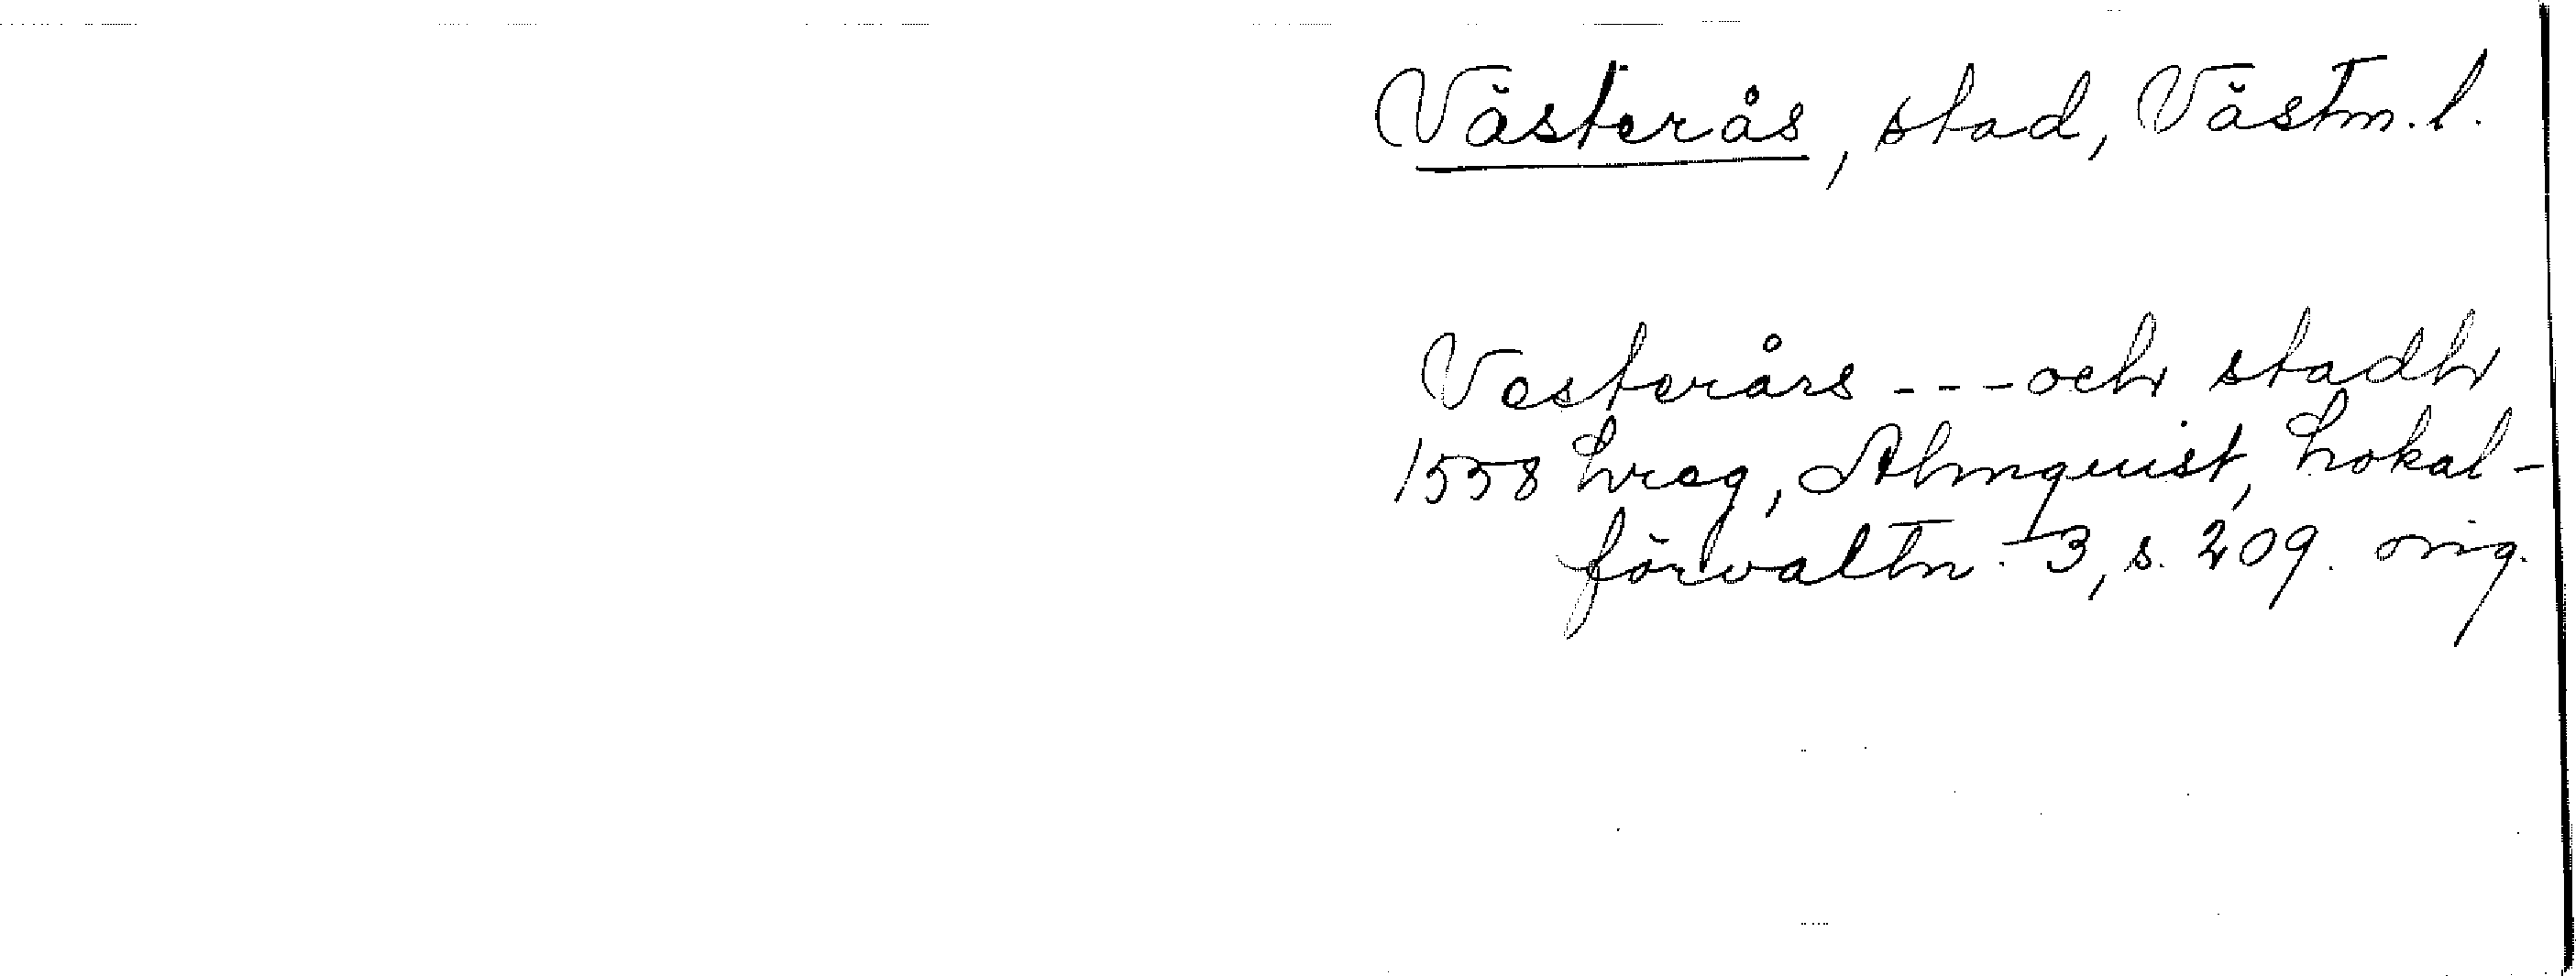 Västerås, stad, Västm. l.
Vesterårs --- och stadh
1558 hreg, Almquist, Lokal-
förvaltn. 3, s. 209. orig.